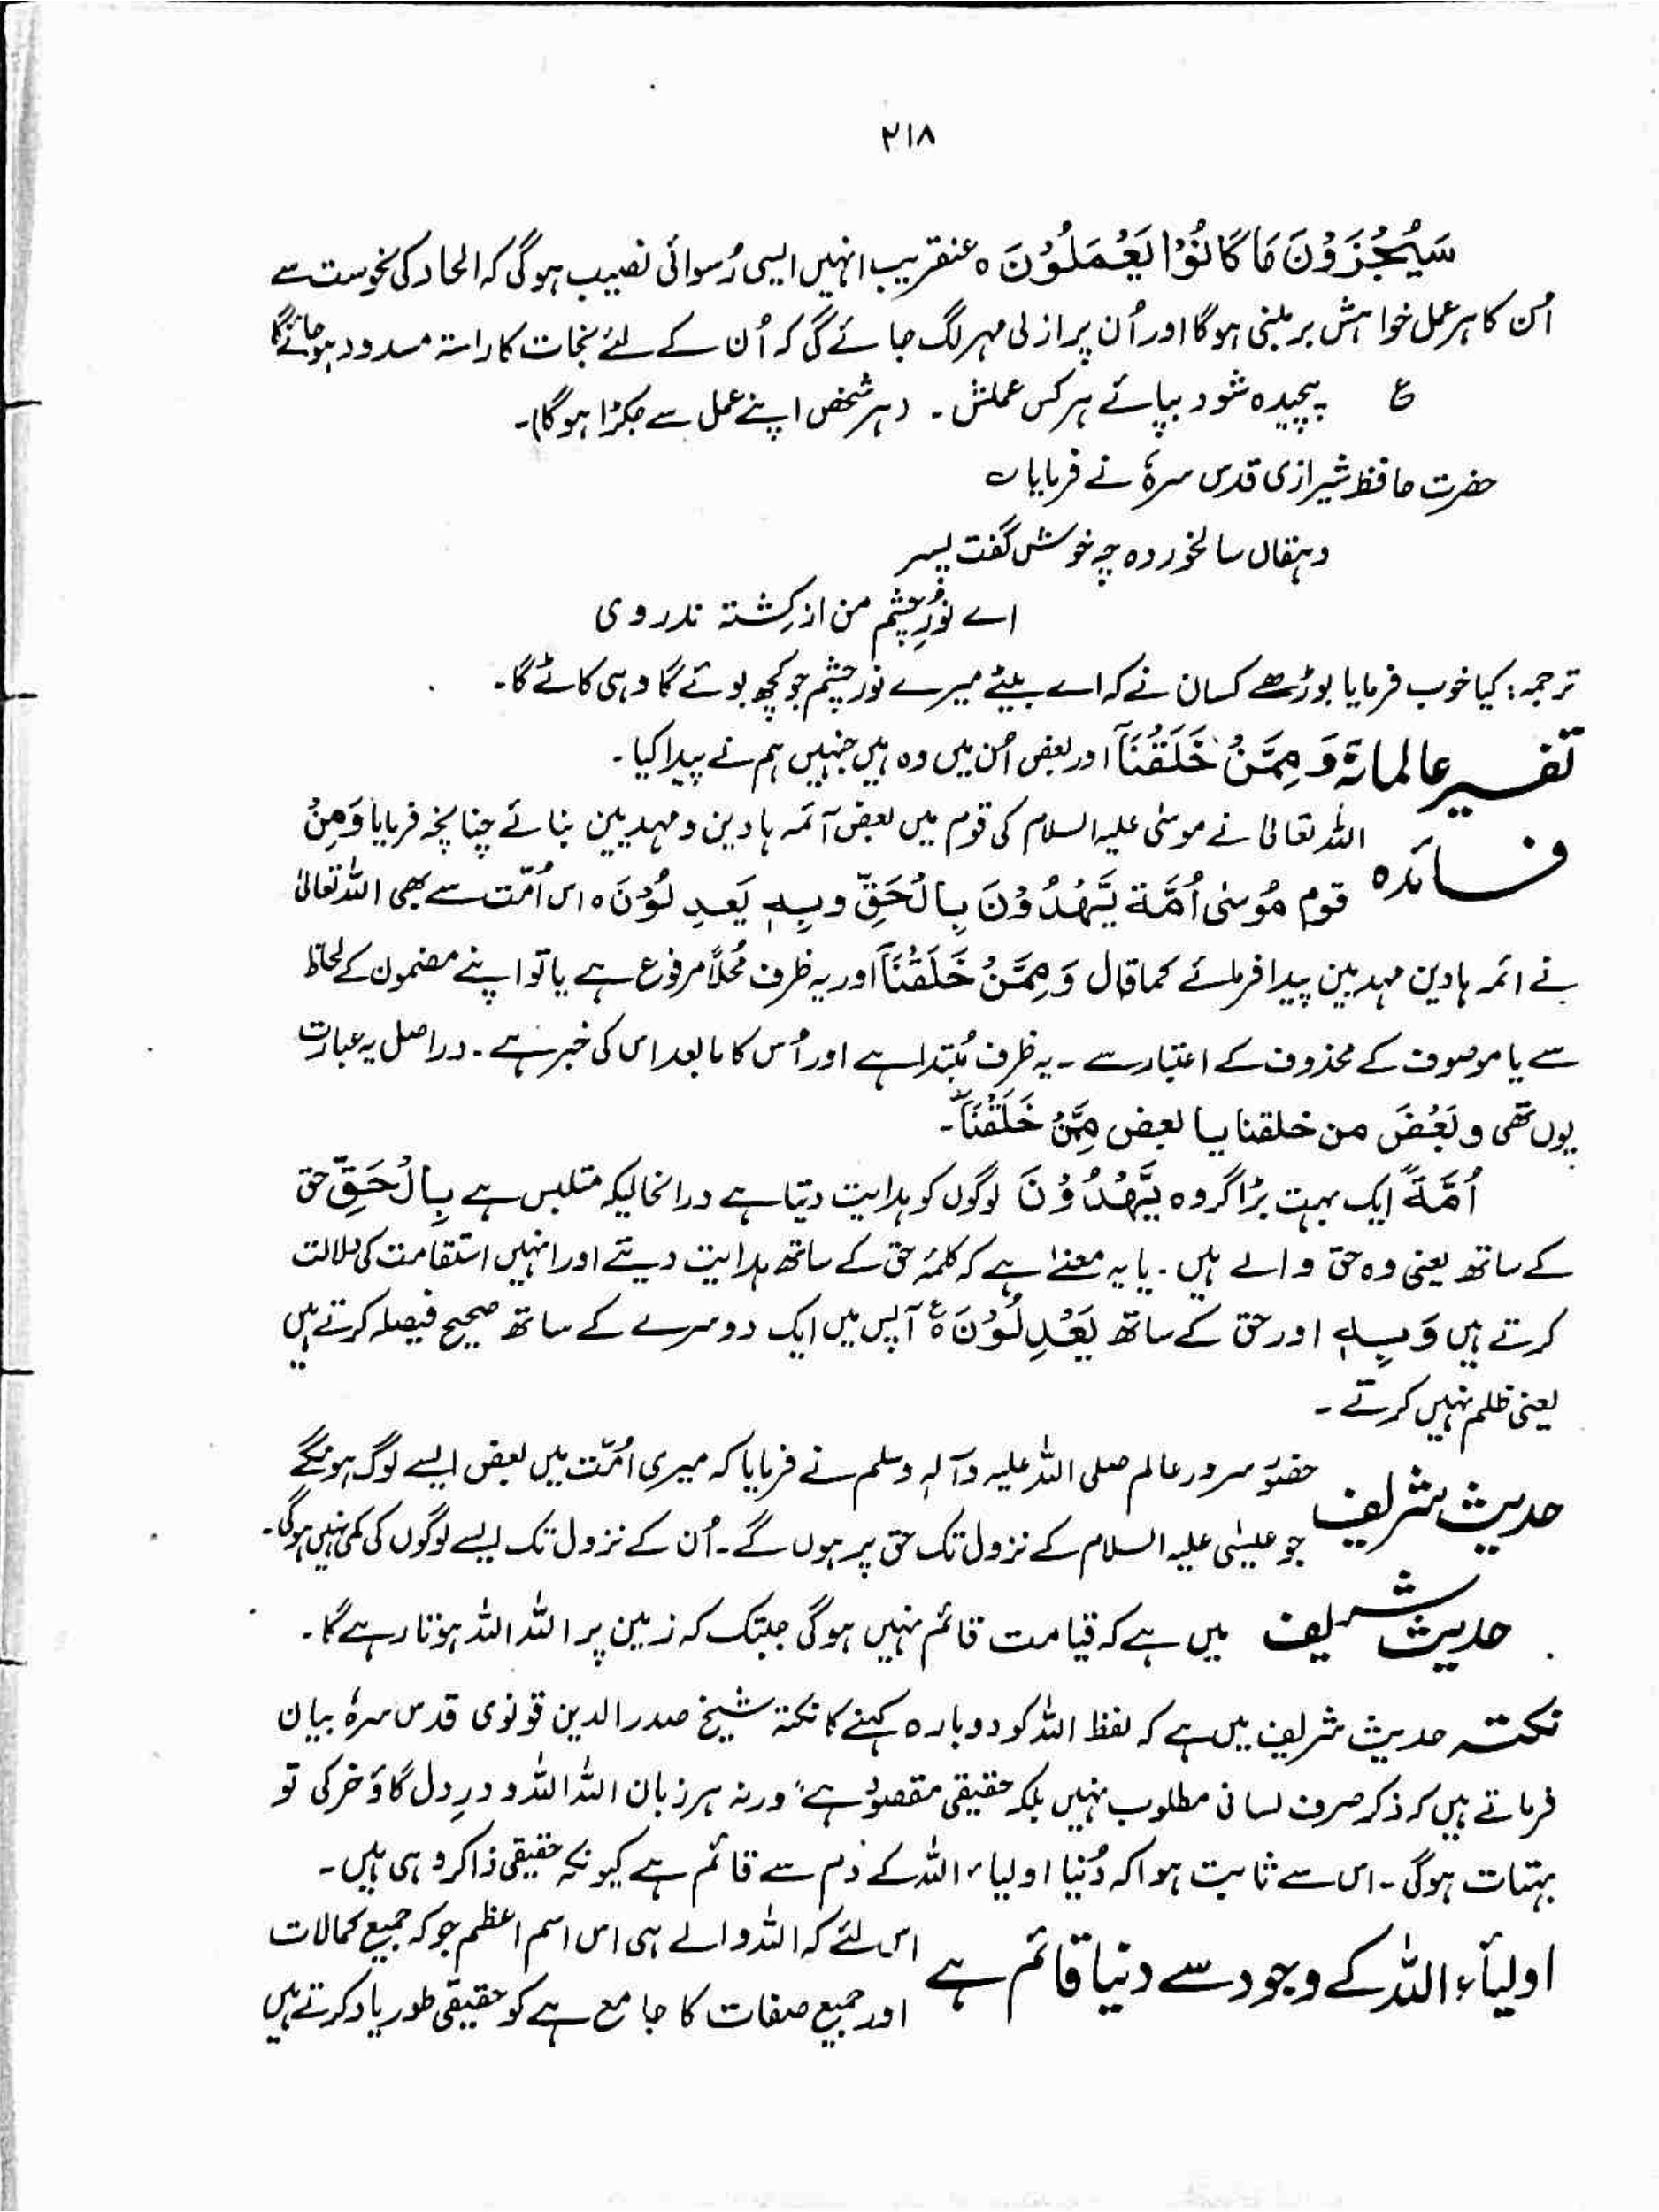 ۲۱۸
سَیُجْزَوْنَ مَا کَانُوْا یَعْمَلُوْنَ ہ عنقریب انہیں ایسی رُسوائی نصیب ہوگی کہ الحاد کی نحوست سے
اُن کا ہر عمل خواہش پر مبنی ہوگا اور اُن پر ازلی مہر لگ جائے گی کہ اُن کے لئے نجات کا راستہ مسدود ہو جائیگا
ع پیچیدہ شود بپائے ہر کس عملش ۔ (ہر شخص اپنے عمل سے جکڑا ہوگا)۔
حضرت حافظ شیرازی قدس سرہٗ نے فرمایا ؎
دہقاں سالخوردہ چہ خوش گفت پسر
اے نُورِ چشم من از کِشتہ ندروی
ترجمہ: کیا خوب فرمایا بوڑھے کسان نے کہ اے بیٹے میرے نور چشم جو کچھ بوئے گا وہی کاٹے گا۔
تفسیر عالمانہ وَ مِمَّنْ خَلَقْنَآ اور بعض اُن میں وہ ہیں جنہیں ہم نے پیدا کیا۔
فائدہ اللہ تعالیٰ نے موسیٰ علیہ السلام کی قوم میں بعض آئمہ ہادین و مہدیین بنائے چنانچہ فرمایا وَمِنْ
قوم مُوسٰی اُمَّة یَّهْدُوْنَ بِالْحَقِّ وبِهٖ یَعدِلُوْنَ ہ اس اُمّت سے بھی اللہ تعالیٰ
نے ائمہ ہادین مہدیین پیدا فرمائے کما قال وَ مِمَّنْ خَلَقْنَآ اور یہ ظرف مُحلاً مرفوع ہے یا تو اپنے مضمون کے لحاظ
سے یا موصوف کے محذوف کے اعتبار سے ۔ یہ ظرف مُبتدا ہے اور اُس کا مابعد اس کی خبر ہے ۔ دراصل یہ عبارت
یوں تھی و بَعْضَ من خلقنا یا بعض مِمَّنْ خَلَقْنَآ۔
اُمَّةً ایک بہت بڑا گروہ یَّهْدُوْنَ لوگوں کو ہدایت دیتا ہے درانحالیکہ متلبس ہے بِالْحَقِّ حق
کے ساتھ یعنی وہ حق والے ہیں ۔ یا یہ معنےٰ ہے کہ کلمۂ حق کے ساتھ ہدایت دیتے اور انہیں استقامت کی دلالت
کرتے ہیں وَ بِهٖ اور حق کے ساتھ یَعْدِلُوْنَ ہ ع آپس میں ایک دوسرے کے ساتھ صحیح فیصلہ کرتے ہیں
یعنی ظلم نہیں کرتے ۔
حدیث شریف حضور سرورِ عالم صلی اللہ علیہ وآلہٖ وسلم نے فرمایا کہ میری اُمّت میں بعض ایسے لوگ ہونگے
جو عیسٰی علیہ السلام کے نزول تک حق پر ہوں گے ۔ اُن کے نزول تک ایسے لوگوں کی کمی نہیں ہوگی۔
حدیث شریف میں ہے کہ قیامت قائم نہیں ہوگی جبتک کہ زمین پر اللہ اللہ ہوتا رہے گا۔
نکتہ حدیث شریف میں ہے کہ لفظ اللہ کو دوبارہ کہنے کا نکتہ شیخ صدر الدین قونوی قدس سرہٗ بیان
فرماتے ہیں کہ ذکر صرف لسانی مطلوب نہیں بلکہ حقیقی مقصود ہے ورنہ بر زبان اللہ اللہ و در دِل گاؤ خر کی تو
بہتات ہوگی ۔ اس سے ثابت ہوا کہ دُنیا اولیاء اللہ کے دَم سے قائم ہے کیونکہ حقیقی ذاکر وہی ہیں ۔
اولیأ اللہ کے وجود سے دنیا قائم ہے اس لئے کہ اللہ والے ہی اس اسم اعظم جو کہ جمیع کمالات
اور جمیع صفات کا جامع ہے کو حقیقی طور یاد کرتے ہیں